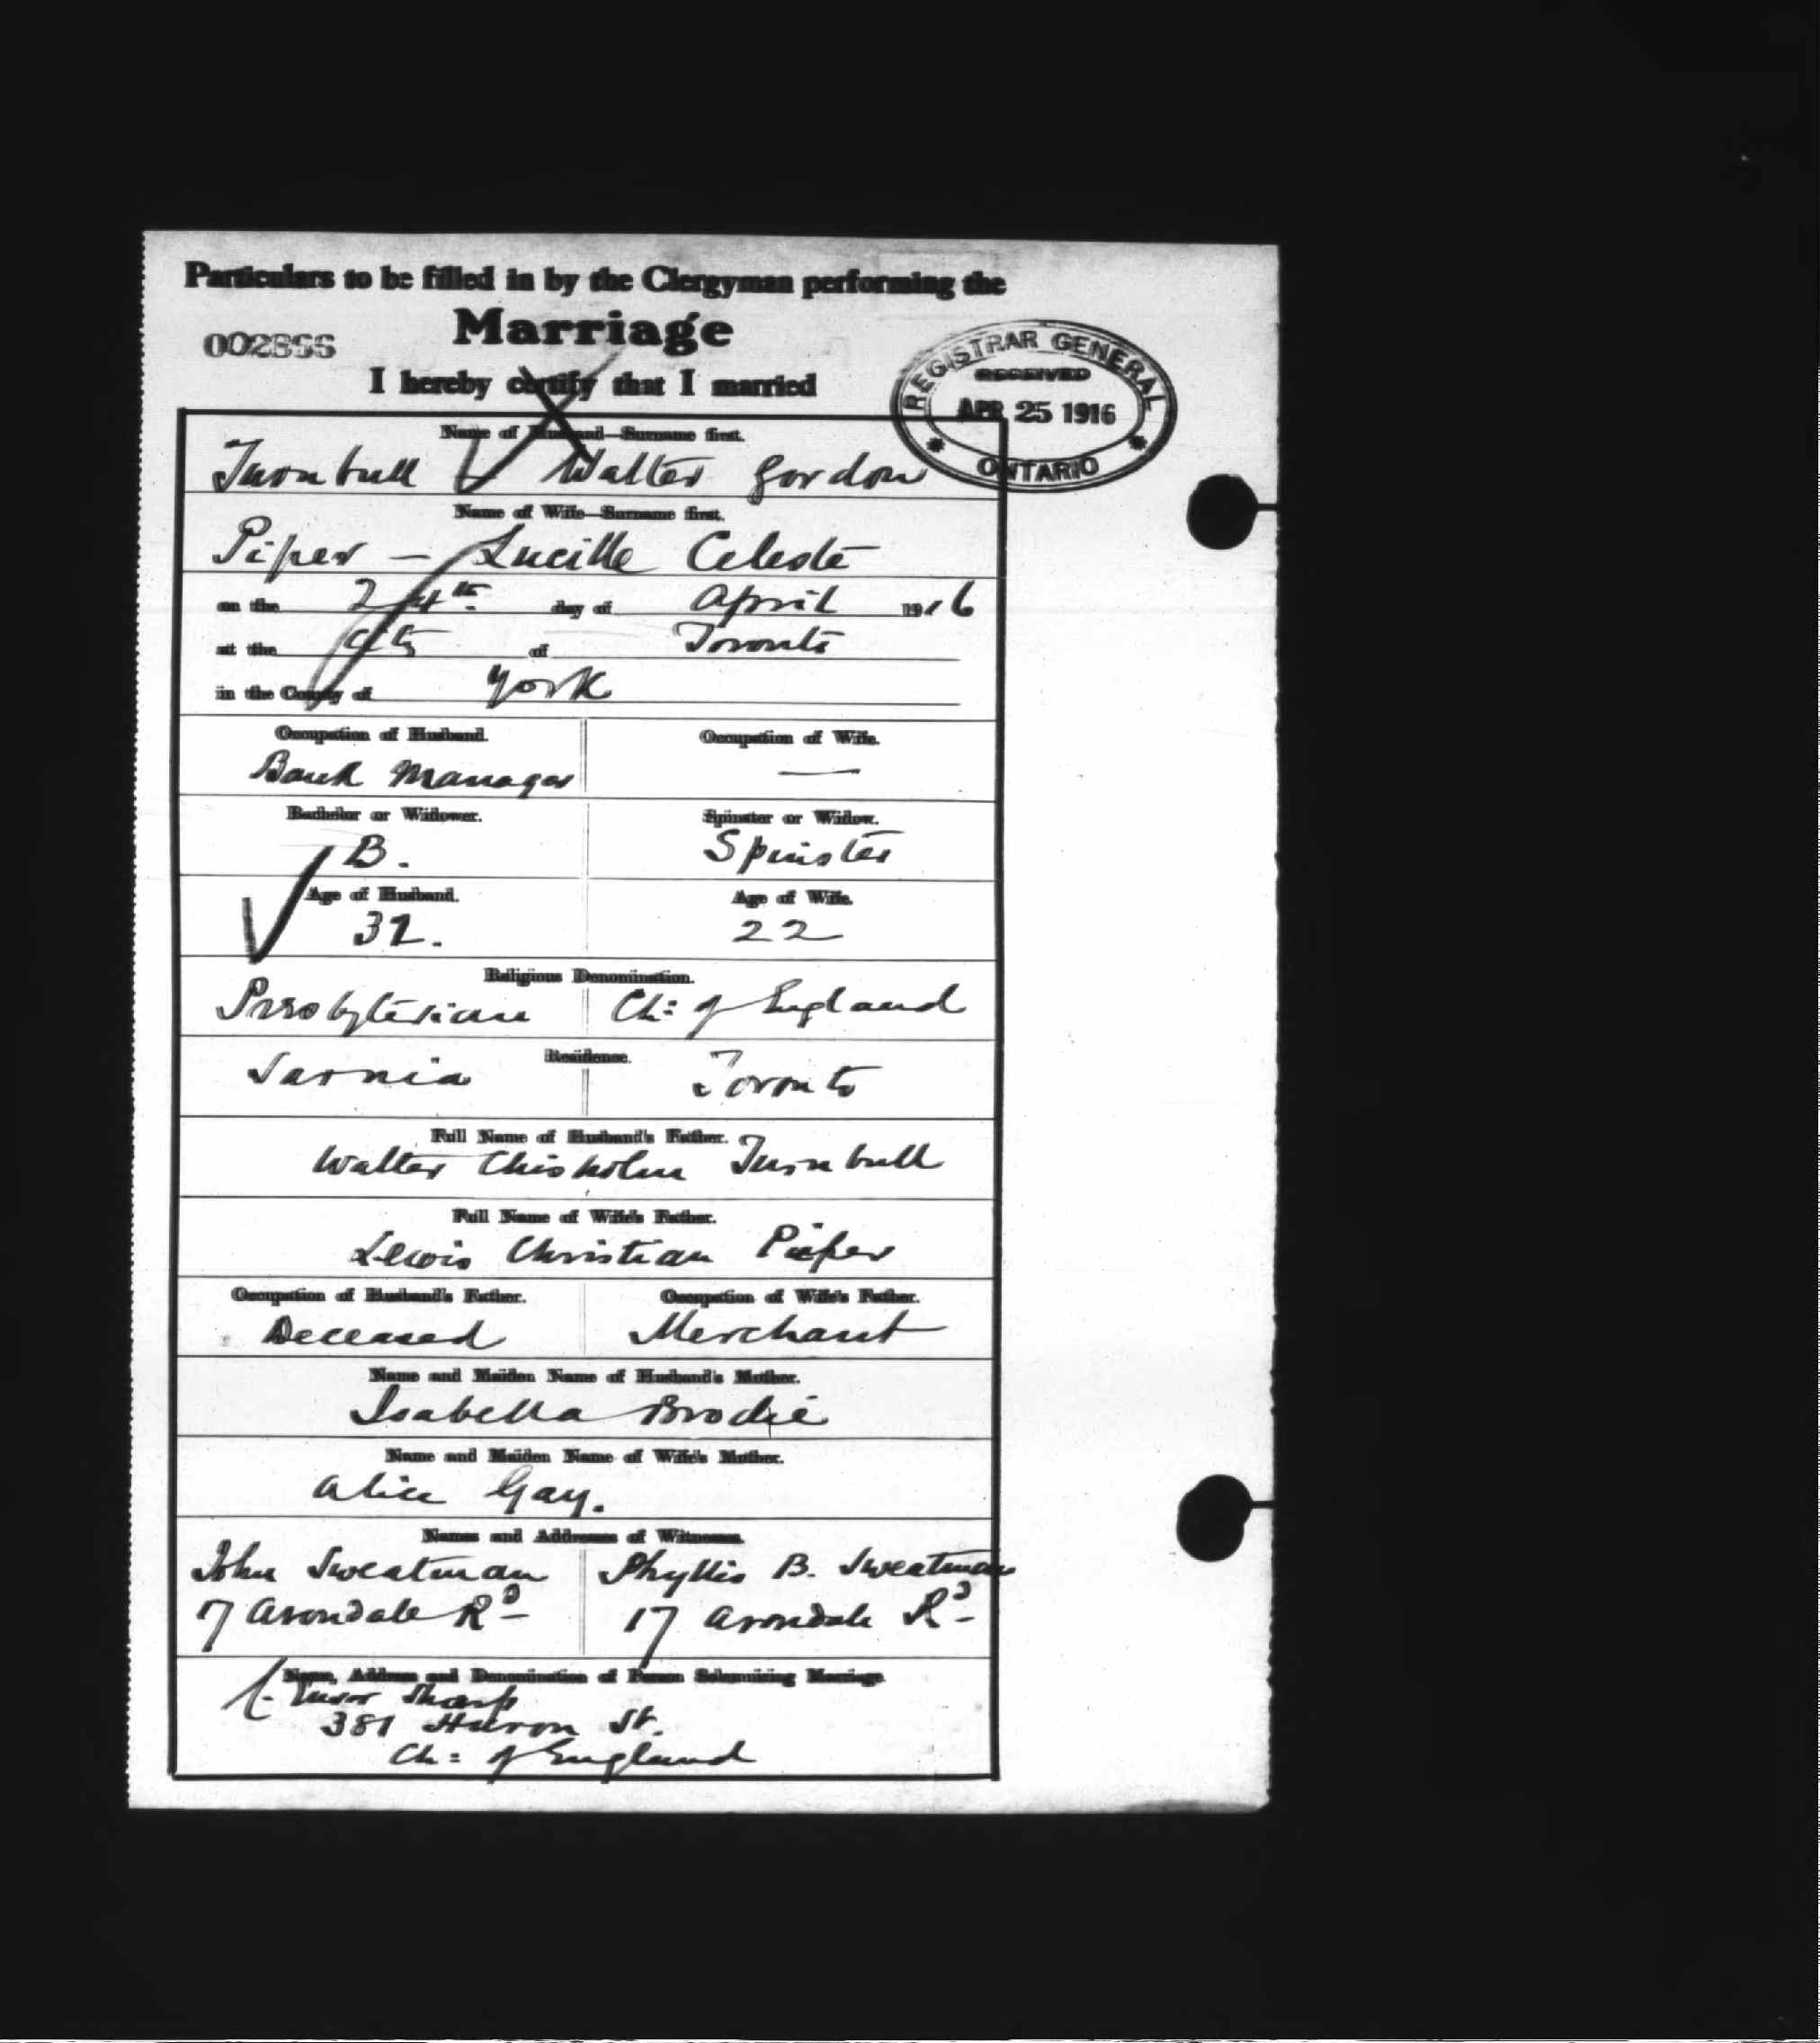 Particulars to be filled in by the Clergyman performing the
Marriage
I hereby certify that I married
REGISTRAR GENERAL
RECEIVED
APR 25 1916
ONTARIO
Name of Husband—Surname first.
Turnbull Walter Gordon
Name of Wife—Surname first.
Piper — Lucille Celeste
on the 24th day of April 1916
at the City of Toronto
in the County of York
Occupation of Husband. Occupation of Wife.
Bank Manager —
Bachelor or Widower. Spinster or Widow.
B. Spinster
Age of Husband. Age of Wife.
32. 22
Religious Denomination.
Presbyterian Ch: of England
Residence.
Sarnia Toronto
Full Name of Husband's Father.
Walter Chisholm Turnbull
Full Name of Wife's Father.
Lewis Christian Piper
Occupation of Husband's Father. Occupation of Wife's Father.
Deceased Merchant
Name and Maiden Name of Husband's Mother.
Isabella Brodie
Name and Maiden Name of Wife's Mother.
Alice Gay.
Names and Addresses of Witnesses.
John Sweatman Phyllis B. Sweatman
17 Avondale Rd
Name, Address and Denomination of Person Solemnizing Marriage.
Ensor Sharp
381 Huron St.
Ch: of England